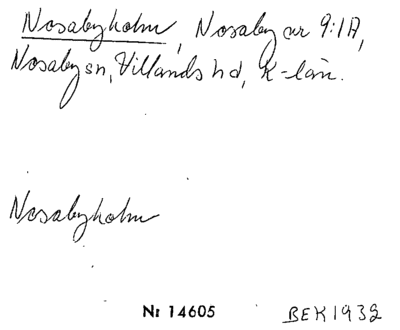 Nosabyholm, Nosaby nr 9:1A,
Nosaby sn, Villands hd, K-län.
Nosabyholm
Nr 14605 BEK1932